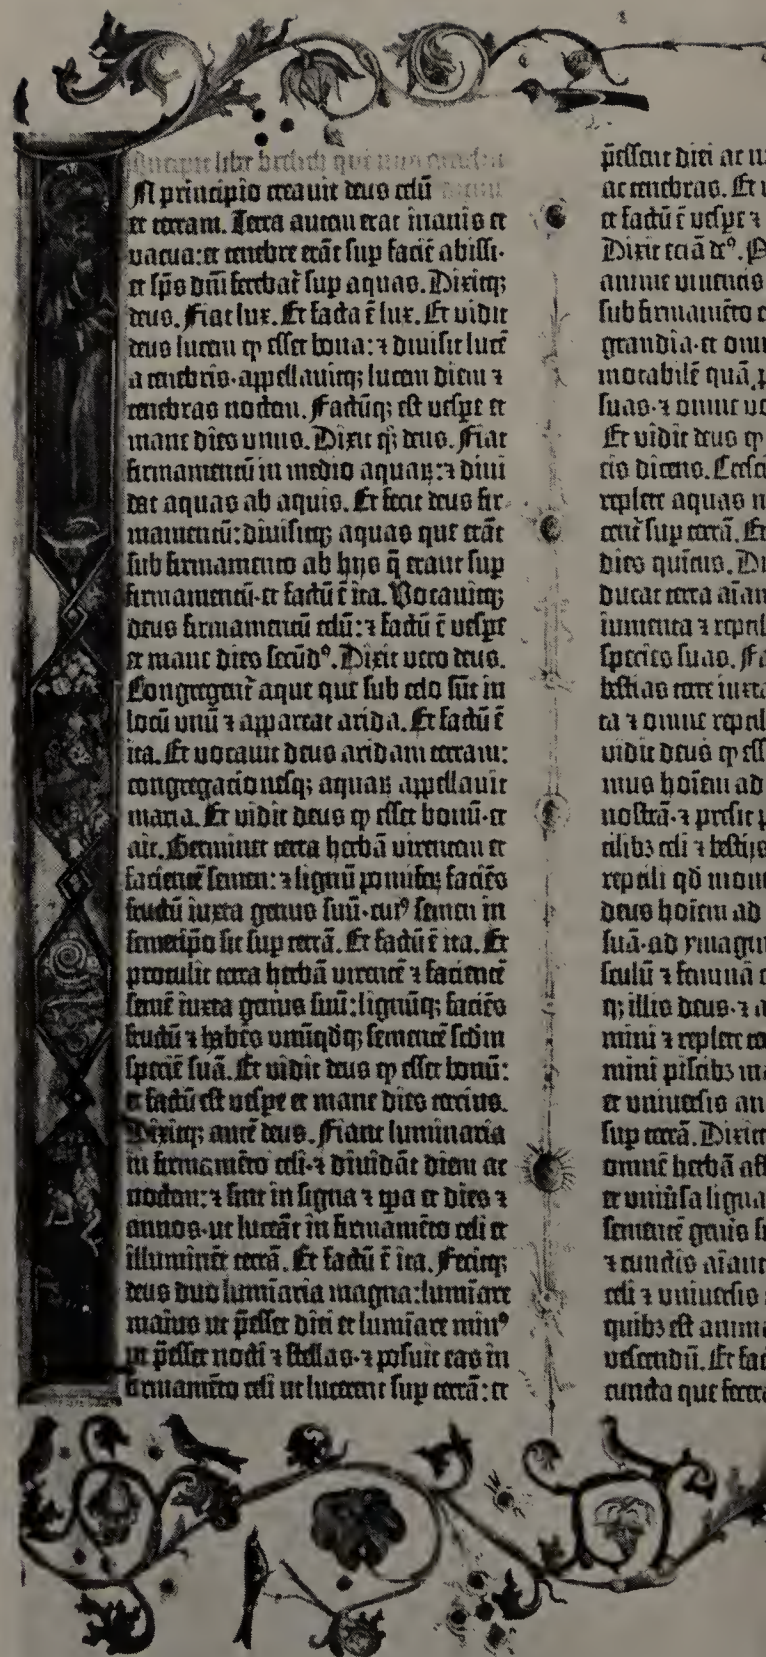 Incipit liber bresith quē nos genesim
In principio creauit deus celū
et terram. Terra autem erat inanis et
vacua: et tenebre erāt sup faciē abissi·
et sp̄s dn̄i ferebat᷑ sup aquas. Dixitq;
deus. Fiat lux. Et facta ē lux. Et vidit
deus lucem ꝙ esset bona: ⁊ diuisit lucē
a tenebris· appellauitq; lucem diem ⁊
tenebras noctem. Factūq; est vespe et
mane dies unus. Dixit q̄; deus. Fiat
firmamentū in medio aquaꝝ: ⁊ diui
dat aquas ab aquis. Et fecit deus fir
mamentū: diuisitq; aquas que erāt
sub firmamento ab hijs q̄ erant sup
firmamentū· et factū ē ita. Vocauitq;
deus firmamentū celū: ⁊ factū ē vespe
et mane dies secūdꝰ. Dixit vero deus.
Congregent᷑ aque que sub celo sūt in
locū unū ⁊ appareat arida. Et factū ē
ita. Et vocauit deus aridam terram:
congregationesq; aquaꝝ appellauit
maria. Et vidit deus ꝙ esset bonū· et
ait. Germinet terra herbā virentem et
facientē semen: ⁊ lignū pomifeꝝ faciēs
fructū iuxta genus suū· cuiꝰ semen in
semetip̄o sit sup terrā. Et factū ē ita. Et
protulit terra herbā virentē ⁊ facientē
semē iuxta genus suū: lignūq; faciēs
fructū ⁊ habēs unūqdq; sementē scdm
speciē suā. Et vidit deus ꝙ esset bonū:
et factū est vespe et mane dies tercius.
Dixitq; autē deus. Fiant luminaria
in firmamēto celi· ⁊ diuidāt diem ac
noctem: ⁊ sint in signa ⁊ tp̄a et dies ⁊
annos· ut luceāt in firmamēto celi et
illuminēt terrā. Et factū ē ita. Fecitq;
deus duo lumīaria magna: lumīare
maius ut p̄esset diei et lumīare minꝰ
ut p̄esset nocti ⁊ stellas· ⁊ posuit eas in
firmamēto celi ut lucerent sup terrā: et
p̄essent diei ac n
ac tenebras. Et v
et factū ē vespe ⁊
Dixit eciā deꝰ. P
anime viuentis
sub firmamēto c
grandia· et omn
motabilē quā p
suas· ⁊ omne vo
Et vidit deus ꝙ
eis dicens. Cresci
replete aquas m
cent᷑ sup terrā. Et
dies quintus. Di
ducat terra aīam
iumenta ⁊ reptil
species suas. Fa
bestias terre iuxta
ta ⁊ omne reptil
vidit deus ꝙ ess
mus hoīem ad
nostrā· ⁊ presit p
tilibꝫ celi ⁊ bestijs
reptili qd̄ mou
deus hoīem ad
suā· ad ymagin
sculū ⁊ feminā c
q; illis deus· ⁊ a
mini ⁊ replete te
mini piscibꝫ ma
et uniuersis an
sup terrā. Dixit
omnē herbā aff
et uniūsa ligna
sementē genis s
⁊ cunctis aīant
celi ⁊ uniuersis
quibꝫ est anima
vescendū. Et fac
cuncta que fecera